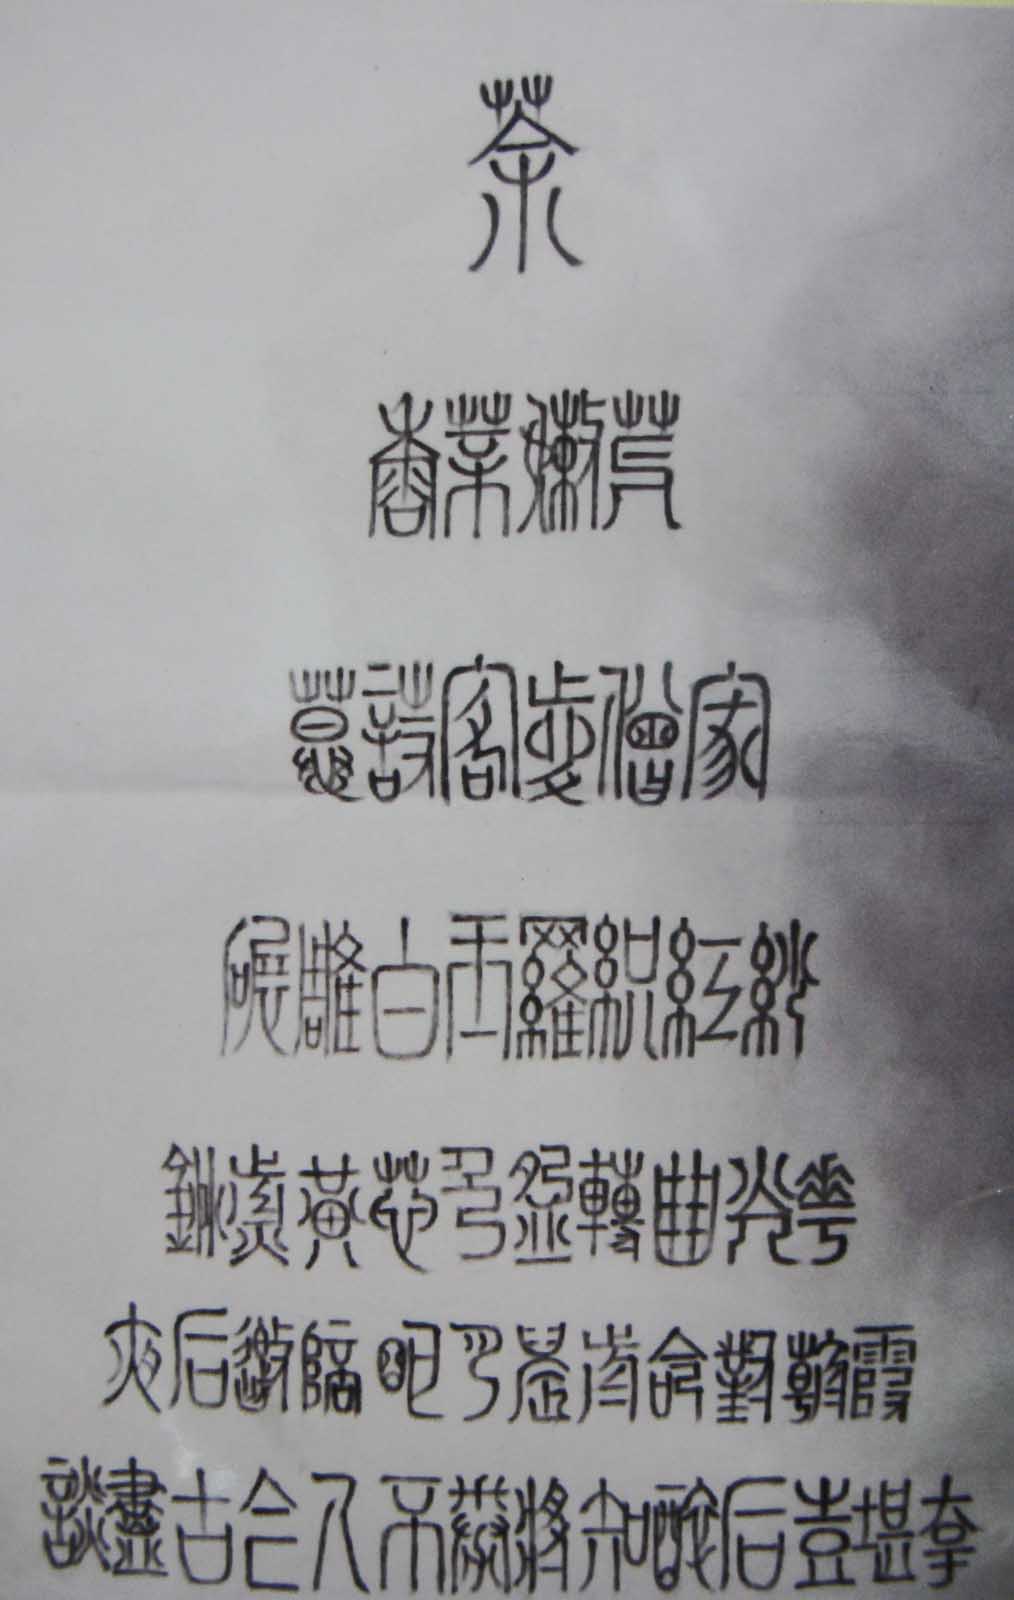 茶
香葉嫩芽
慕詩客愛僧家
碾雕白玉羅織紅紗
銚煎黃蕊色盌轉曲塵花
夜后邀陪明月晨前命對朝霞
談盡古今人不倦將知醉后豈堪夸